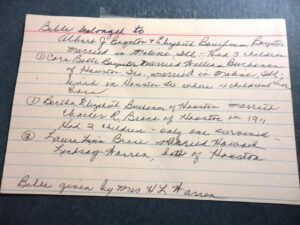 Bible belonged to
Albert J Boynton & Elizabeth Baughman Boynton
married in Moline, Ill. - Had 3 children
Cora Belle Boynton married William Buchanan
of Houston Tex. married in Moline, Ill.
lived in Houston Tex where 4 children were
born
① Bertha Elizabeth Buchanan of Houston married
Charles R. of Houston in 19
Had 2 children - only one survived -
② Laura Lynn married Howard
Lindsay Warren, both of Houston.
Bible given by Mrs H L Warren